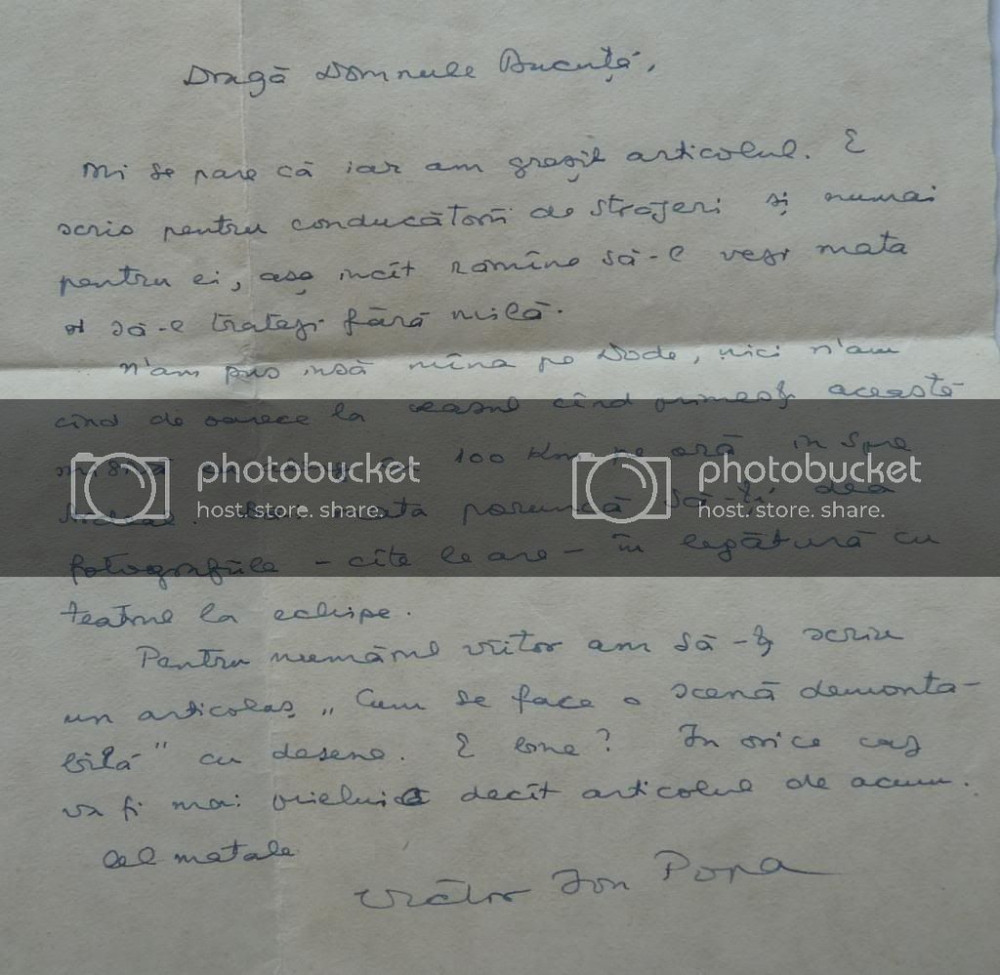 Dragă Domnule Bucuță,
Mi se pare că iar am greșit articolul. E
scris pentru conducătorii de străjeri și numai
pentru ei, așa incît rămîne să-l vezi mata
să-l tratezi fără milă.
N'am pus însă mîna pe Dode, nici n'am
cînd de oarece la ceasul cînd primești aceastǎ
100 Km pe oră în spre
mata poruncă să-ți dea
fotografiile - cîte le are - în legătură cu
teatrul la echipe.
Pentru numărul viitor am să-ți scriu
un articolaș „Cum se face o scenă demonta-
bilă" cu desene. E bine? In orice caz
va fi mai decît articolul de acum.
al matale
Victor Ion Popa
photobucket
host. store. share.
photobucket
host. store. share.